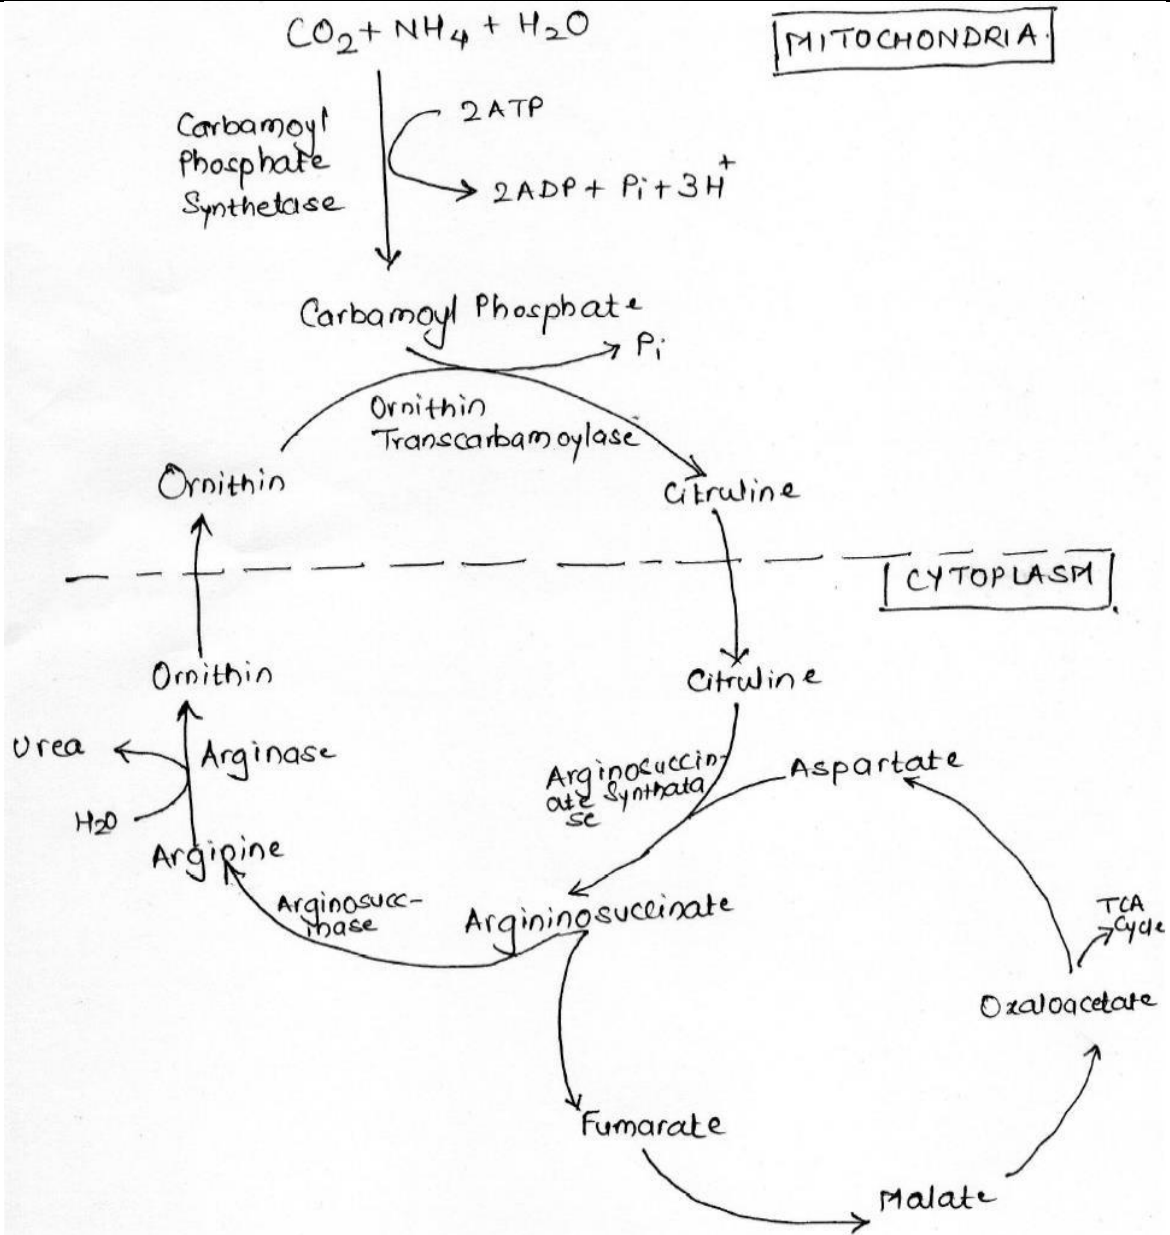 CO₂ + NH₄ + H₂O
MITOCHONDRIA.
Carbamoyl
Phosphate
Synthetase
2ATP
2ADP + Pi + 3H⁺
Carbamoyl Phosphate
Pi
Ornithin
Transcarbamoylase
Ornithin
Citruline
CYTOPLASM
Ornithin
Citruline
Urea
Arginase
H₂O
Arginine
Arginosuccin-
ate Synthata
se
Aspartate
Arginosucc-
inase
Argininosuccinate
TCA
Cycle
Oxaloacetate
Fumarate
Malate